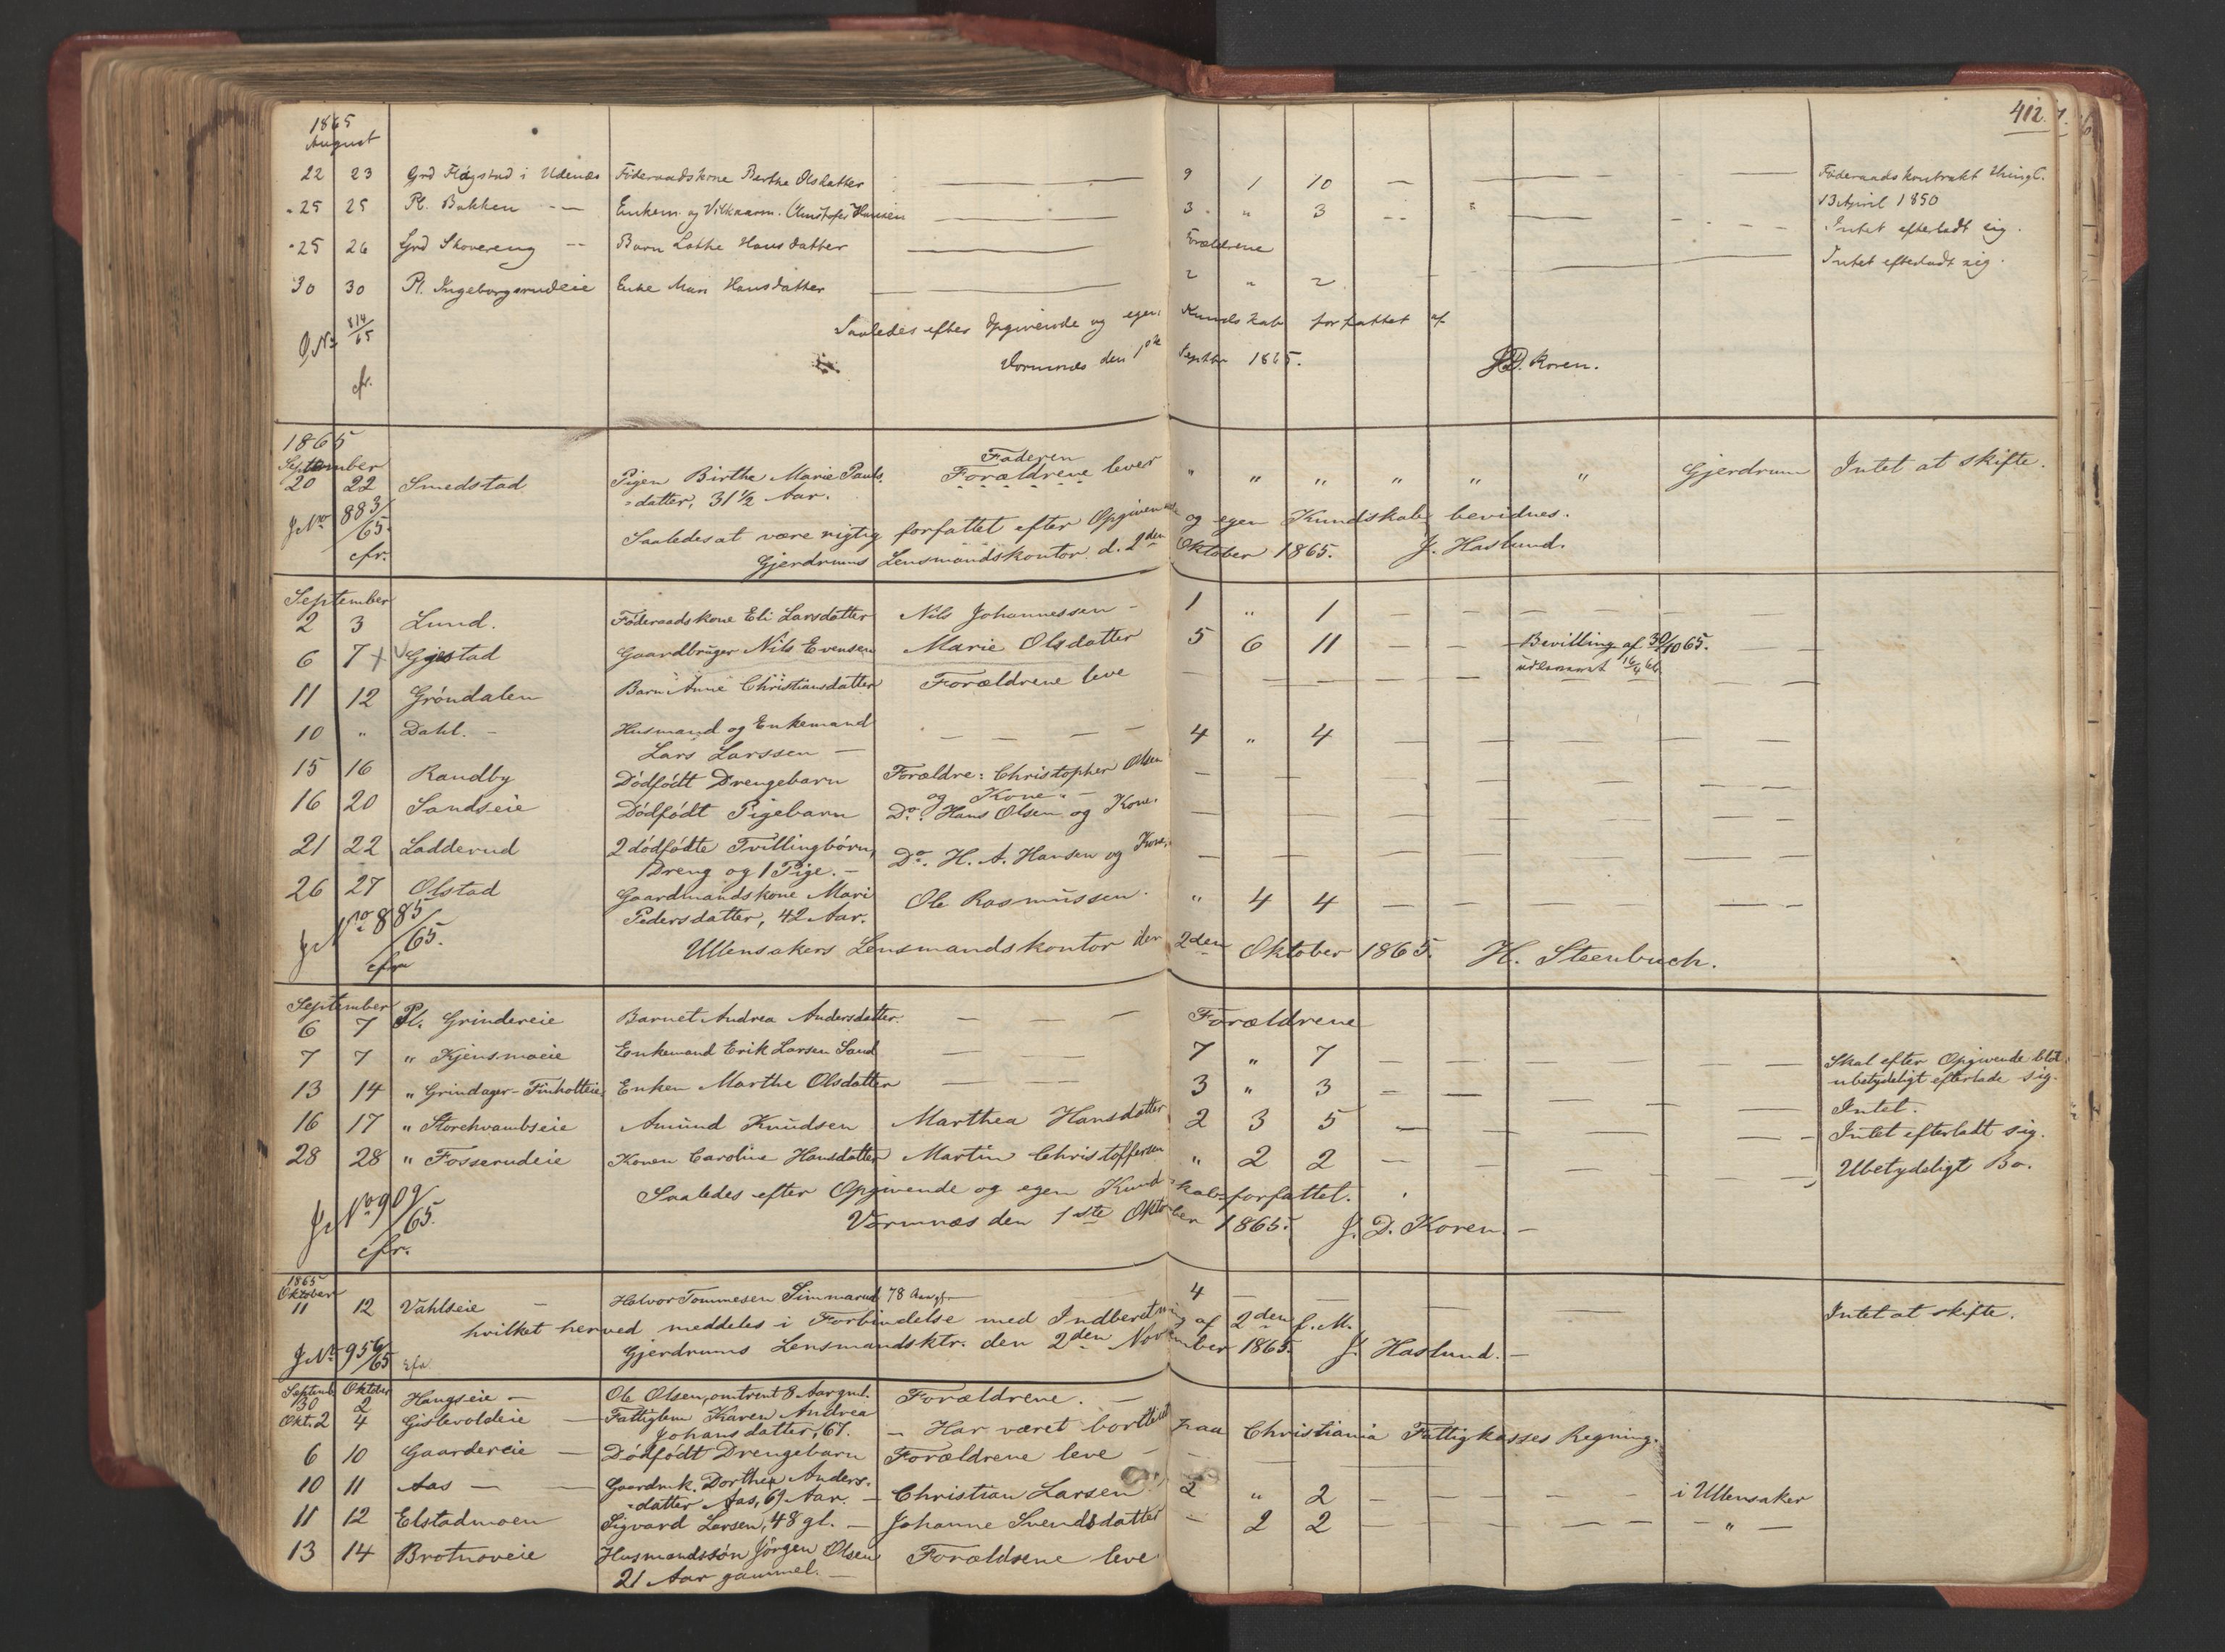 412.
1865
August
22 23 Grd Flögstad i Udenæs Föderaadskone Berthe Olsdatter — 9 1 10 — — — Föderaadskontrakt thingl.
13 April 1850
25 25 Pl. Bakken — Enkem. og Vilkaarm. Christofer Hansen — 3 " 3 — " — — Intet efterladt sig.
25 26 Grd Skovereng — Barn Lathe Hansdatter — Forældrene
30 30 Pl. Ingeborgsrudeie Enke Mari Hansdatter — 2 " 2 — — Intet efterladt sig.
J.No 814/65
cfr.
Saaledes efter Opgivende og egen Kundskab forfattet af
Vormnæs den 1ste Septbr 1865. J.D. Koren.
1865
September
20 22 Smedstad Pigen Birthe Marie Pauls- Faderen
=datter, 31½ Aar. Forældrene lever " " " " " " Gjerdrum Intet at skifte.
J.No 883/65.
cfr.
Saaledes at være rigtig forfattet efter Opgivende og egen Kundskab bevidnes.
Gjerdrums Lensmandskontor d. 2den Oktober 1865. J. Haslund.
September
2 3 Lund. Föderaadskone Eli Larsdatter Nils Johannessen — 1 " 1 — — — —
6 7 + Gjestad Gaardbruger Nils Evensen Marie Olsdatter 5 6 11 — — Bevilling af 30/10 65. — —
udkommet 16/4 66.
11 12 Gröndalen Barn Anne Christiansdatter Forældrene leve — — — —
10 " Dahl. — Husmand og Enkemand
Lars Larssen — — — — 4 " 4 — — — —
15 16 Randby Dödfödt Drengebarn Forældre: Christopher Olsen
og Kone " — — — —
16 20 Sandseie Dödfödt Pigebarn Do. Hans Olsen og Kone. — — —
21 22 Ladderud 2 dödfödte Tvillingbörn,
1 Dreng og 1 Pige. — Do. H. A. Hansen og Kone. — — —
26 27 Olstad Gaardmandskone Mari
Pedersdatter, 42 Aar. Ole Rasmussen. " 4 4 — — — —
J No 885/65.
cfr
Ullensakers Lensmandskontor den 2den Oktober 1865. H. Steenbuch.
September
6 7 Pl. Grindereie Barnet Andrea Andersdatter. — — — Forældrene
7 7 " Kjensmoeie Enkemand Erik Larsen Sand — — 7 " 7 — — — — Skal efter Opgivende blot
ubetydeligt efterlade sig.
13 14 " Grindager-Finholteie Enken Marthe Olsdatter — — 3 " 3 — — — — Intet.
16 17 " Storehvambseie Amund Knudsen Marthea Hansdatter 2 3 5 — — — — Intet efterladt sig.
28 28 " Fosserudeie Konen Caroline Hansdatter Martin Christoffersen " 2 2 — — — — Ubetydeligt Bo.
J No 909/65.
cfr.
Saaledes efter Opgivende og egen Kundskab forfattet.
Vormnæs den 1ste Oktober 1865. J. D. Koren. —
1865
Oktober
11 12 Vahlseie — Halvor Tommesen Simmarud 78 Aar gl. — 4 — — — — Intet at skifte.
hvilket herved meddeles i Forbindelse med Indberetning af 2den f. M.
J No 956/65 cfr.
Gjerdrums Lensmandsktr. den 2den November 1865. J. Haslund. —
Septemb. Oktober
30 2 Haugseie — Ole Olsen, omtrent 8 Aar gml. Forældrene. —
Okt. 2 4 Gislevoldeie — Fattiglem Karen Andrea
Johansdatter, 67. — Har været bortsat paa Christiania Fattigkasses Regning.
6 10 Gaardereie — Dödfödt Drengebarn Forældrene leve — — — —
10 11 Aas — — Gaardmk. Dorthea Anders-
=datter Aas, 69 Aar. — Christian Larsen 2 " 2 — — — — i Ullensaker
11 12 Elstadmoen Sigvard Larsen, 48 gl. — Johanne Svendsdatter — 2 2 — — — — " —
13 14 Brotnoveie Husmandssön Jörgen Olsen
21 Aar gammel. — Forældrene leve